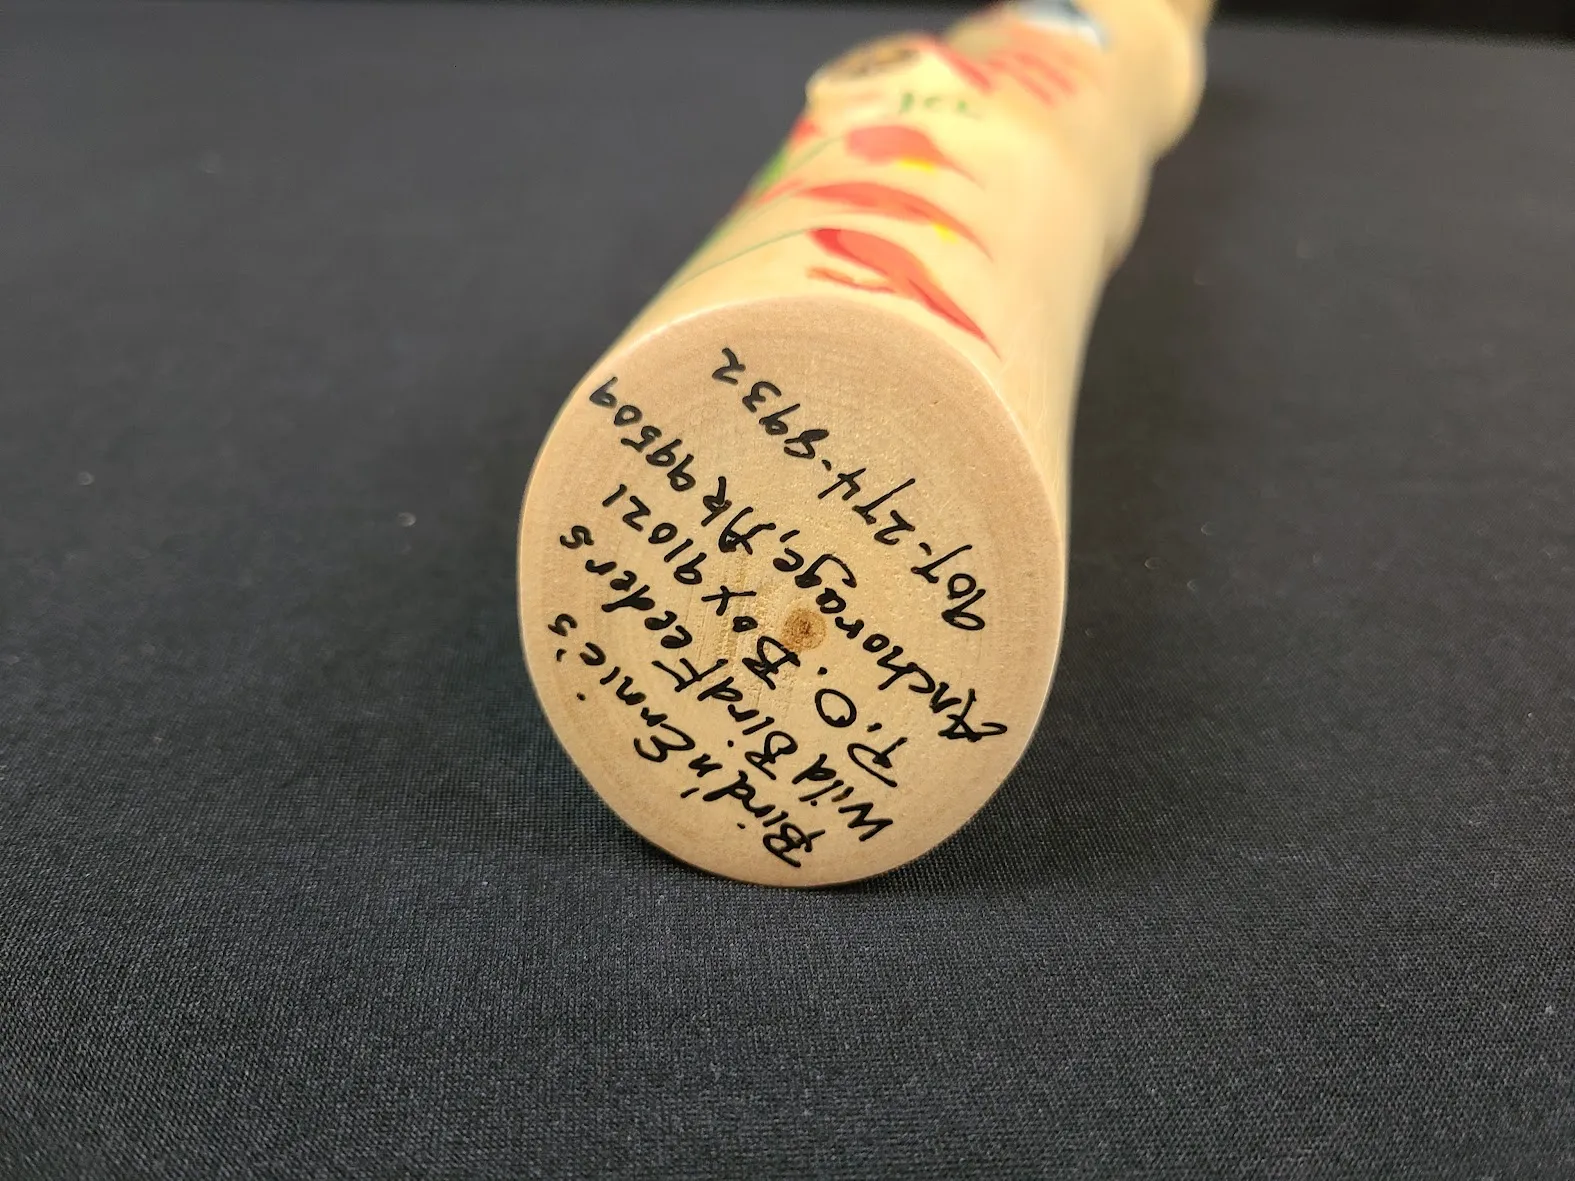 Bird'n Ernie's
Wild Bird Feeders
P.O. Box 91021
Anchorage, Ak 99509
907-274-8932